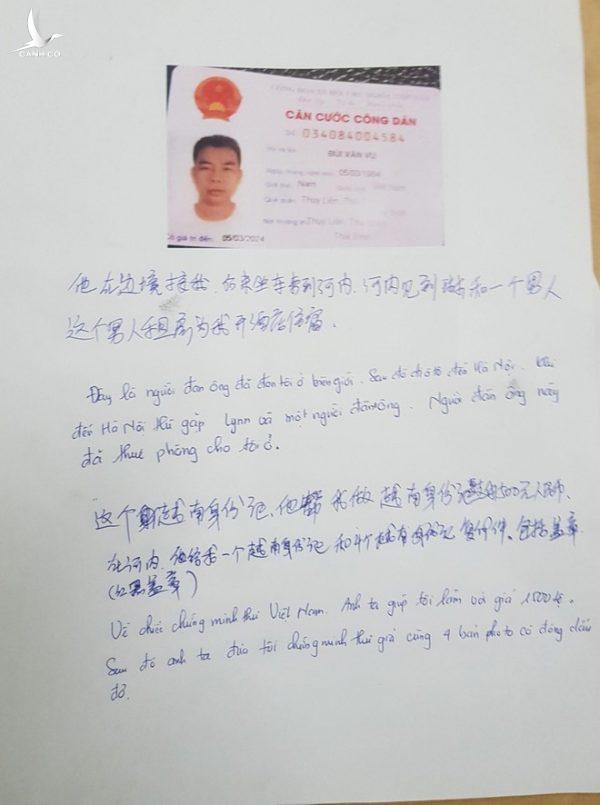 CANHCO
CĂN CƯỚC CÔNG DÂN
Số 034084004584
Họ và tên
BÙI VĂN VỤ
Ngày, tháng, năm sinh: 05/03/1984
Giới tính: Nam Quốc tịch: Việt Nam
Quê quán: Thụy Liên,
Nơi thường trú: Thụy Liên,
Thái Bình
Có giá trị đến: 05/03/2024
他在边境接我. 后来坐车来到河内. 河内见到 和一个男人
这个男人租房为我开酒店住宿.
Đây là người đàn ông đã đón tôi ở biên giới. Sau đó chở tô đến Hà Nội. Khi
đến Hà Nội thì gặp Lynn và một người đàn ông. Người đàn ông này
đã thuê phòng cho tôi ở.
这个 越南身份记. 他帮我做越南身份记 1500元人民币.
在河内. 他给我一个越南身份记 和4个越南身份记复印件. 包括盖章
(红黑盖章)
Về chiếc chứng minh thư Việt Nam. Anh ta giúp tôi làm với giá 1500 tệ.
Sau đó anh ta đưa tôi chứng minh thư giả cùng 4 bản photo có đóng dấu
đỏ.